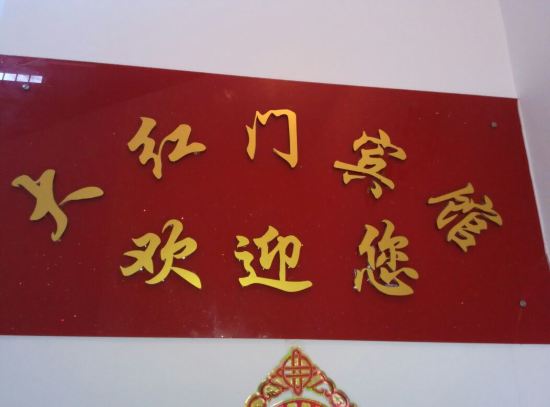 大红门宾馆
欢迎您